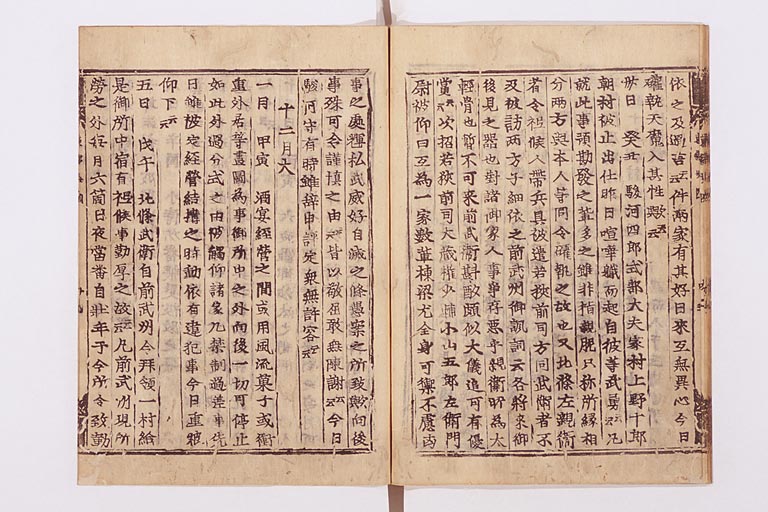 依之及過言云云件兩家有其好日來互無異心今日
確執天魔入其性歟云云
卅日 癸丑 駿河四郎式部大夫家村上野十郎
朝村被止出仕昨日喧嘩職而起自彼等武勇云云凡
就此事預勘發之輩多之雖非指親昵只称所縁相
分兩方與本人等同令確執之故也又北條左親衛
者令祗候人帶兵具被遣若狭前司方同武衛者不
及被訪兩方子細依之前武州御諷詞云各將來御
後見之器也對諸御家人事爭存惡乎親衛所為太
輕骨也暫不可來前武衛斟酌頗似大儀追可有優
賞云云次招若狭前司大蔵權少輔小山五郎左衛門
尉被仰曰互為一家數輩棟梁尤全身可禦不慮凶
事之處輝私武威好自滅之條愚案之所致歟向後
事殊可令謹慎之由云云皆以敬屈敢無陳謝云云今日
駿河守有時雖辞申評定衆無許容云云
十二月大
一日 甲寅 酒宴經營之間或用風流菓子或衝
重外居等畫圖為事御所中之外向後一切可停止
如此外過分式之由被觸仰諸家凡禁制過差事先
日雖被定經營結搆之時動依有違犯事今日重被
仰下云云
五日 戊午 北條武衛自前武州令拜領一村給
是御所中宿有祗候事勤厚之故云云凡前武州現所
勞之外毎月六箇日夜當番自壮年于今所令致勤